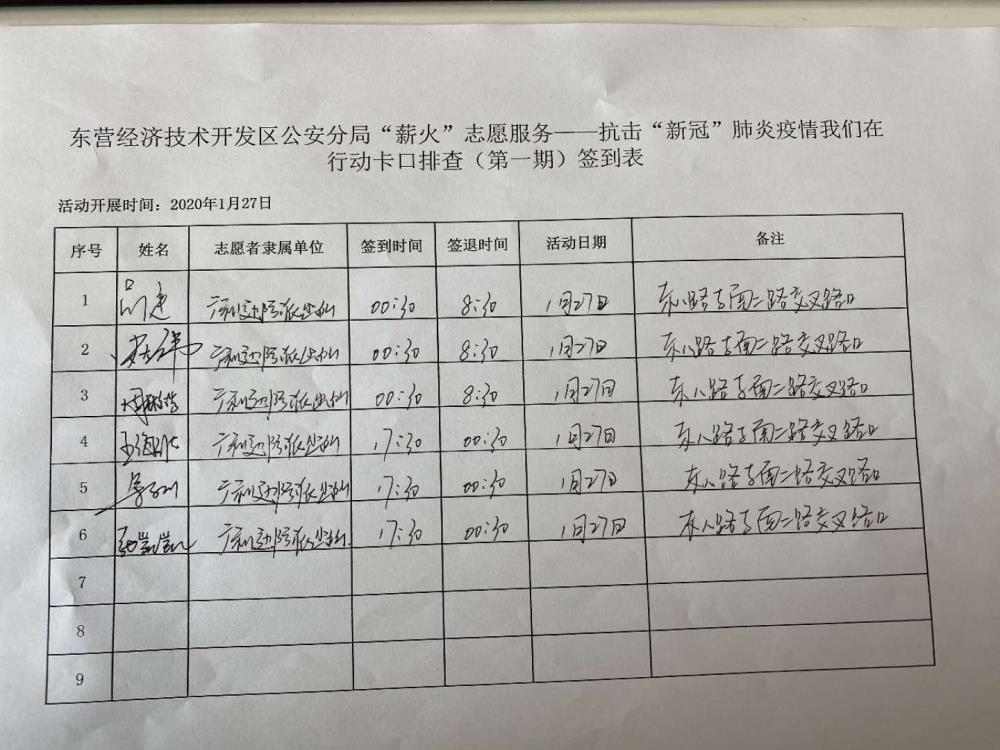 东营经济技术开发区公安分局“薪火”志愿服务——抗击“新冠”肺炎疫情我们在
行动卡口排查（第一期）签到表
活动开展时间：2020年1月27日
序号 姓名 志愿者隶属单位 签到时间 签退时间 活动日期 备注
1 广利边防派出所 00:30 8:30 1月27日 东八路与南二路交叉路口
2 广利边防派出所 00:30 8:30 1月27日 东八路与南二路交叉路口
3 广利边防派出所 00:30 8:30 1月27日 东八路与南二路交叉路口
4 广利边防派出所 17:30 00:30 1月27日 东八路与南二路交叉路口
5 广利边防派出所 17:30 00:30 1月27日 东八路与南二路交叉路口
6 广利边防派出所 17:30 00:30 1月27日 东八路与南二路交叉路口
7
8
9